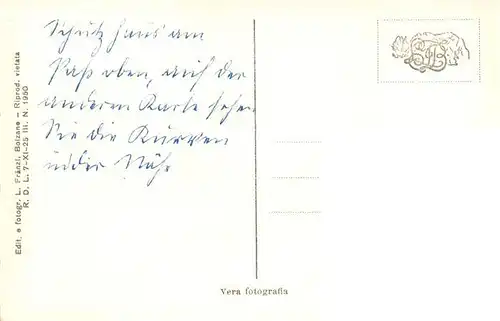 Schutzhaus am
Paß oben, auf der
anderen Karte sehen
Sie die Kurven
in der Nähe
Vera fotografia
Edit. e fotogr. L. Fränzl, Bolzano — Riprod. vietata
R. D. L. 7-XI-25 III. N. 1950